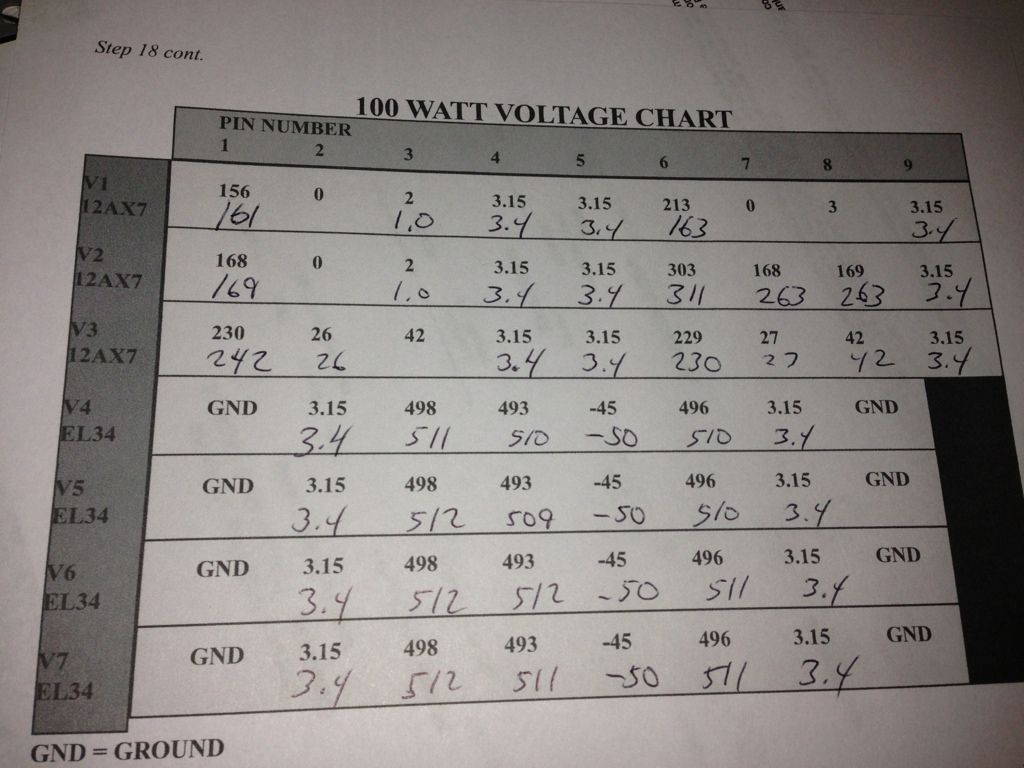 Step 18 cont.
100 WATT VOLTAGE CHART
PIN NUMBER
1 2 3 4 5 6 7 8 9
V1 156 0 2 3.15 3.15 213 0 3 3.15
12AX7 161 1.0 3.4 3.4 163 3.4
V2 168 0 2 3.15 3.15 303 168 169 3.15
12AX7 169 1.0 3.4 3.4 311 263 263 3.4
V3 230 26 42 3.15 3.15 229 27 42 3.15
12AX7 242 26 3.4 3.4 230 27 42 3.4
V4 GND 3.15 498 493 -45 496 3.15 GND
EL34 3.4 511 510 -50 510 3.4
V5 GND 3.15 498 493 -45 496 3.15 GND
EL34 3.4 512 509 -50 510 3.4
V6 GND 3.15 498 493 -45 496 3.15 GND
EL34 3.4 512 512 -50 511 3.4
V7 GND 3.15 498 493 -45 496 3.15 GND
EL34 3.4 512 511 -50 511 3.4
GND = GROUND